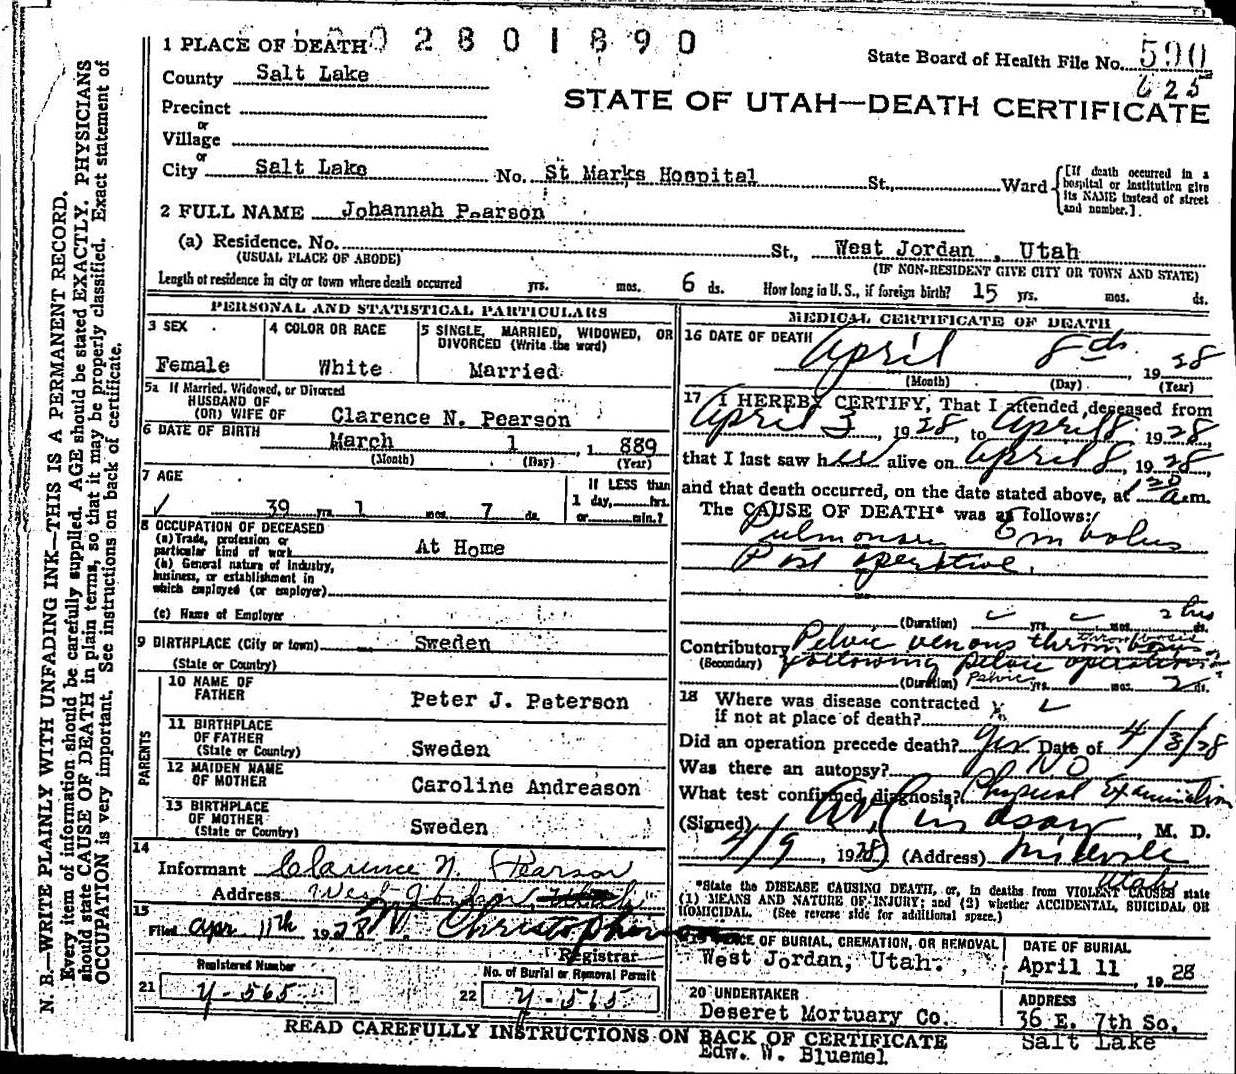 1 PLACE OF DEATH 02801890
State Board of Health File No. 590
625
County Salt Lake
STATE OF UTAH—DEATH CERTIFICATE
Precinct
or
Village
or
City Salt Lake No. St Marks Hospital St., Ward
[If death occurred in a hospital or institution give its NAME instead of street and number.]
2 FULL NAME Johannah Pearson
(a) Residence. No. St., West Jordan, Utah
(USUAL PLACE OF ABODE) (IF NON-RESIDENT GIVE CITY OR TOWN AND STATE)
Length of residence in city or town where death occurred yrs. mos. 6 ds. How long in U.S., if foreign birth? 15 yrs. mos. ds.
PERSONAL AND STATISTICAL PARTICULARS
3 SEX
Female
4 COLOR OR RACE
White
5 SINGLE, MARRIED, WIDOWED, OR DIVORCED (Write the word)
Married
5a If Married, Widowed, or Divorced
HUSBAND OF
(OR) WIFE OF Clarence N. Pearson
6 DATE OF BIRTH March 1, 1889
(Month) (Day) (Year)
7 AGE
39 yrs. 1 mos. 7 ds.
If LESS than
1 day, hrs.
or min.?
8 OCCUPATION OF DECEASED
(a) Trade, profession or
particular kind of work At Home
(b) General nature of industry,
business, or establishment in
which employed (or employer)
(c) Name of Employer
9 BIRTHPLACE (City or town) Sweden
(State or Country)
PARENTS
10 NAME OF
FATHER Peter J. Peterson
11 BIRTHPLACE
OF FATHER
(State or Country) Sweden
12 MAIDEN NAME
OF MOTHER Caroline Andreason
13 BIRTHPLACE
OF MOTHER
(State or Country) Sweden
14
Informant Clarence N. Pearson
Address West Jordan Utah
15
Filed Apr 11th 1928 Christopherson
Registrar
Registered Number
21 Y-565
No. of Burial or Removal Permit
22 Y-565
MEDICAL CERTIFICATE OF DEATH
16 DATE OF DEATH April 8th 1928
(Month) (Day) (Year)
17 I HEREBY CERTIFY, That I attended deceased from
April 3, 1928, to April 8, 1928,
that I last saw her alive on April 8, 1928,
and that death occurred, on the date stated above, at 1 20 a.m.
The CAUSE OF DEATH* was as follows:
Pulmonary Embolus
Post operative.
(Duration) yrs. mos. 2 hrs ds.
Contributory Pelvic venous thrombosis
(Secondary) following pelvic operation
(Duration) Pelvic yrs. mos. 2 ds.
18 Where was disease contracted
if not at place of death?
Did an operation precede death? Yes Date of 4/3/28
Was there an autopsy? No
What test confirmed diagnosis? Physical Examination
(Signed) Lindsay, M. D.
4/9, 1928 (Address) Midvale
Utah
*State the DISEASE CAUSING DEATH, or, in deaths from VIOLENT CAUSES state
(1) MEANS AND NATURE OF INJURY; and (2) whether ACCIDENTAL, SUICIDAL OR
HOMICIDAL. (See reverse side for additional space.)
19 PLACE OF BURIAL, CREMATION, OR REMOVAL
West Jordan, Utah.
DATE OF BURIAL
April 11 1928
20 UNDERTAKER
Deseret Mortuary Co.
ADDRESS
36 E. 7th So.
Salt Lake
READ CAREFULLY INSTRUCTIONS ON BACK OF CERTIFICATE
Edw. W. Bluemel
N. B.—WRITE PLAINLY WITH UNFADING INK—THIS IS A PERMANENT RECORD.
Every item of information should be carefully supplied. AGE should be stated EXACTLY. PHYSICIANS
should state CAUSE OF DEATH in plain terms, so that it may be properly classified. Exact statement of
OCCUPATION is very important. See instructions on back of certificate.